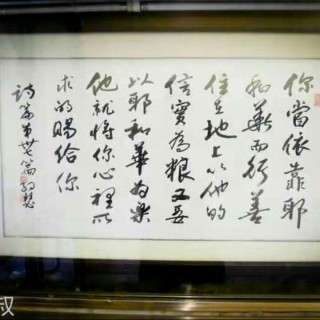 你當依靠耶
和華而行善
住在地上以他的
信實為糧又要
以耶和華為樂
他就將你心裡所
求的賜給你
詩篇第卅七篇
叔